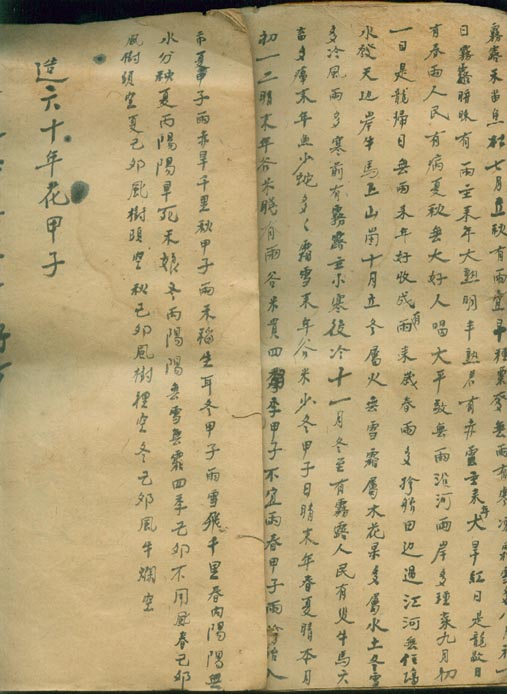 霧露禾苗焦枯七月立秋有雨宜早種粟麥無雨有寒凍霜雪多八月初一
日霧露晴昧有雨主來年大熟明年熟若有赤雲主來年大旱紅日是龍歐日
有春雨人民有病夏秋無大好人唱太平歌無雨沿河兩岸多種菜九月初
一日是龍歸日無雨來年好收成有雨來歲春雨多撿拾田边過江河無任
水發天边岸牛馬上山崗十月立冬屬火無雪霜屬木花果多屬水土冬雪
多冷風雨多寒前有霧露主小寒後冷十一月冬至有霧露人民有災牛馬六
畜多瘴來年魚少蛇多多霜雪來年谷米少冬甲子日晴來年春夏晴本月
初一二晴來年谷米賤有雨谷米貴四季甲子不宜雨春甲子雨
市夏甲子雨赤旱千里秋甲子雨禾稻生耳冬甲子雨雪飛千里春丙陽陽無
水分秧夏丙陽陽旱死禾娘冬丙陽陽無雪無霜四季己卯不用風春己卯
風樹頭空夏己卯風樹頭空秋己卯風樹裡空冬己卯風牛欄空
造六十年花甲子